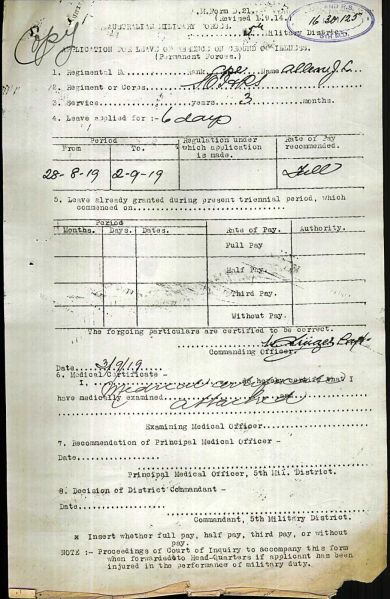 Copy
A.M.Form D.21.
(Revised 1.9.14.)
AUSTRALIAN MILITARY FORCES.
5th Military District.
16 20 125
APPLICATION FOR LEAVE OF ABSENCE ON GROUND OF ILLNESS.
(Permanent Forces.)
1. Regimental No. Rank Cpl Name Allen J. L.
2. Regiment or Corps.
3. Service years 3 months.
4. Leave applied for :- 6 days
Period
Regulation under which application is made.
Rate of Pay recommended.
From To.
28-8-19 2-9-19 Full
5. Leave already granted during present triennial period, which
commenced on
Period
Months. Days. Dates. Rate of Pay. Authority.
Full Pay
Half Pay
Third Pay
Without Pay.
The forgoing particulars are certified to be correct.
Capt
Commanding Officer.
Date 3/9/19
6. Medical Certificate -
I, certify that I
have medically examined
Medical
attached
Examining Medical Officer
7. Recommendation of Principal Medical Officer -
Date
Principal Medical Officer, 5th Mil. District.
8. Decision of District Commandant -
Date
Commandant, 5th Military District.
x Insert whether full pay, half pay, third pay, or without
pay.
NOTE :- Proceedings of Court of Inquiry to accompany this form
when forwarded to Head-Quarters if applicant has been
injured in the performance of military duty.